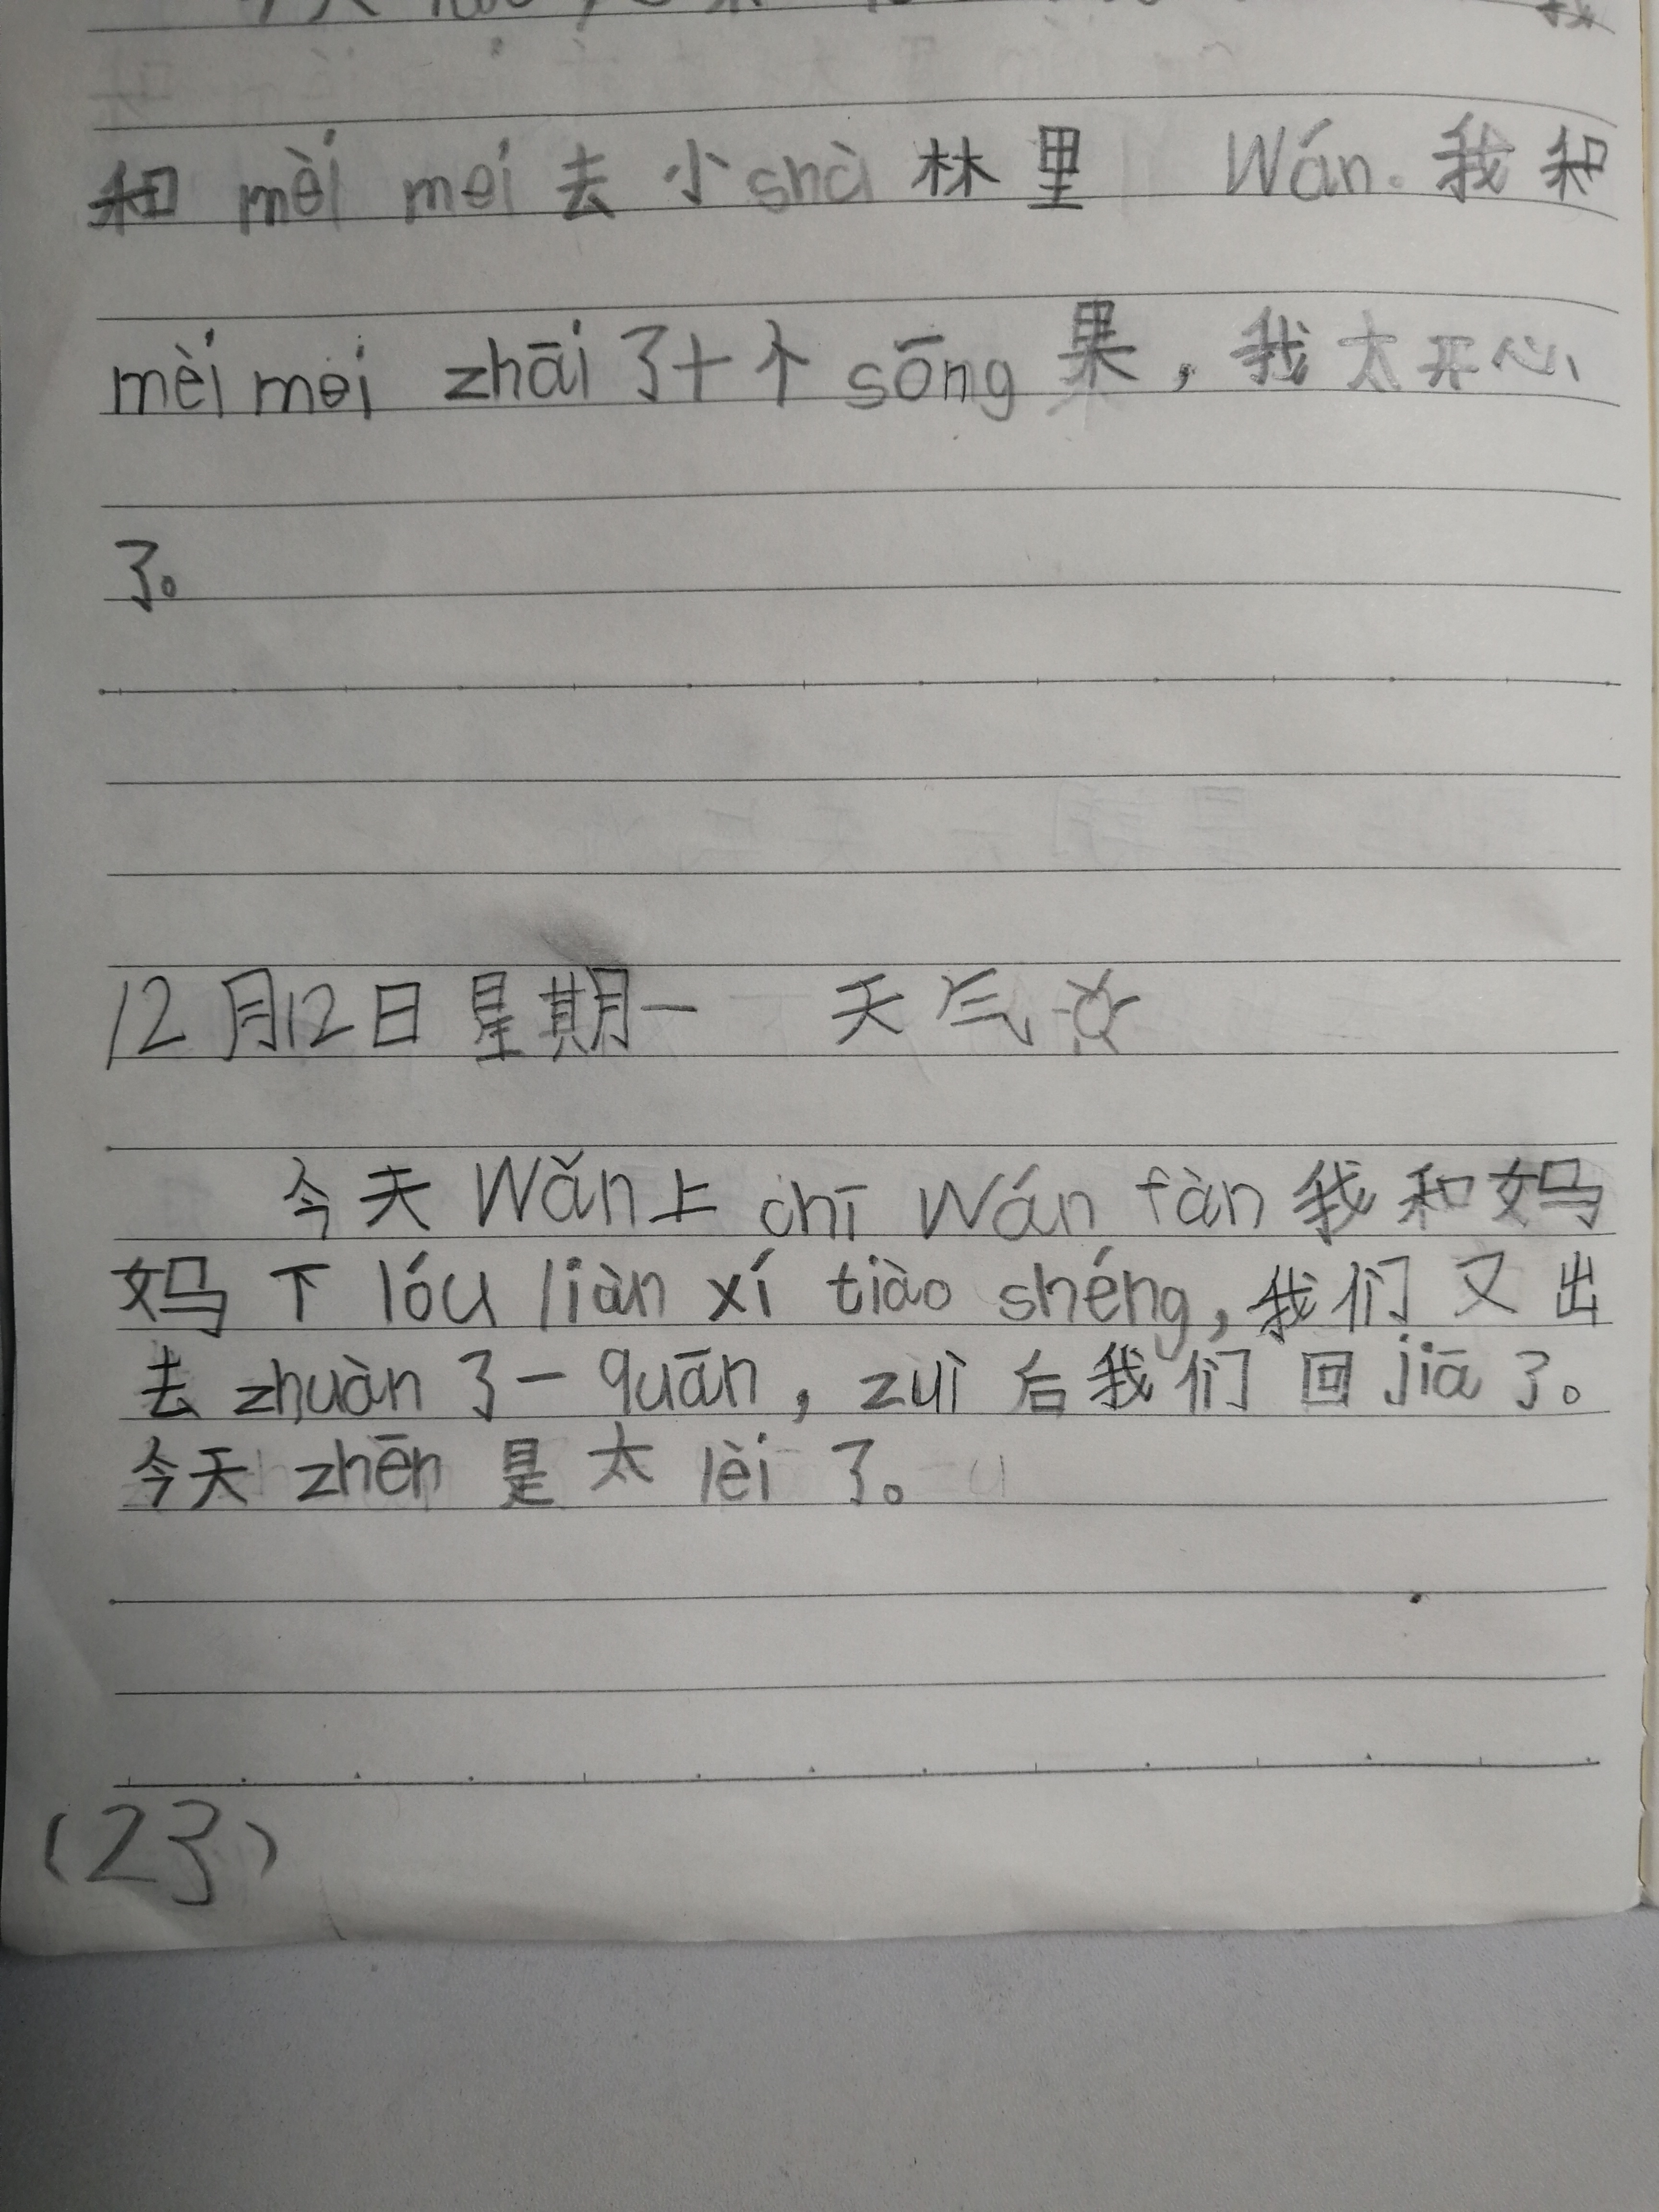 和 mèi mei 去 小 shù 林 里 Wán。我 和
mèi mei zhāi 了 十 个 sōng 果，我 太 开 心
了。
12月12日 星期一 天气
今天 Wǎn上 chī Wán fàn 我 和 妈
妈 下 lóu liàn xí tiào shéng，我们 又 出
去 zhuàn 了 一 quān，zuì 后 我们 回 jiā 了。
今天 zhēn 是 太 lèi 了。
(23)